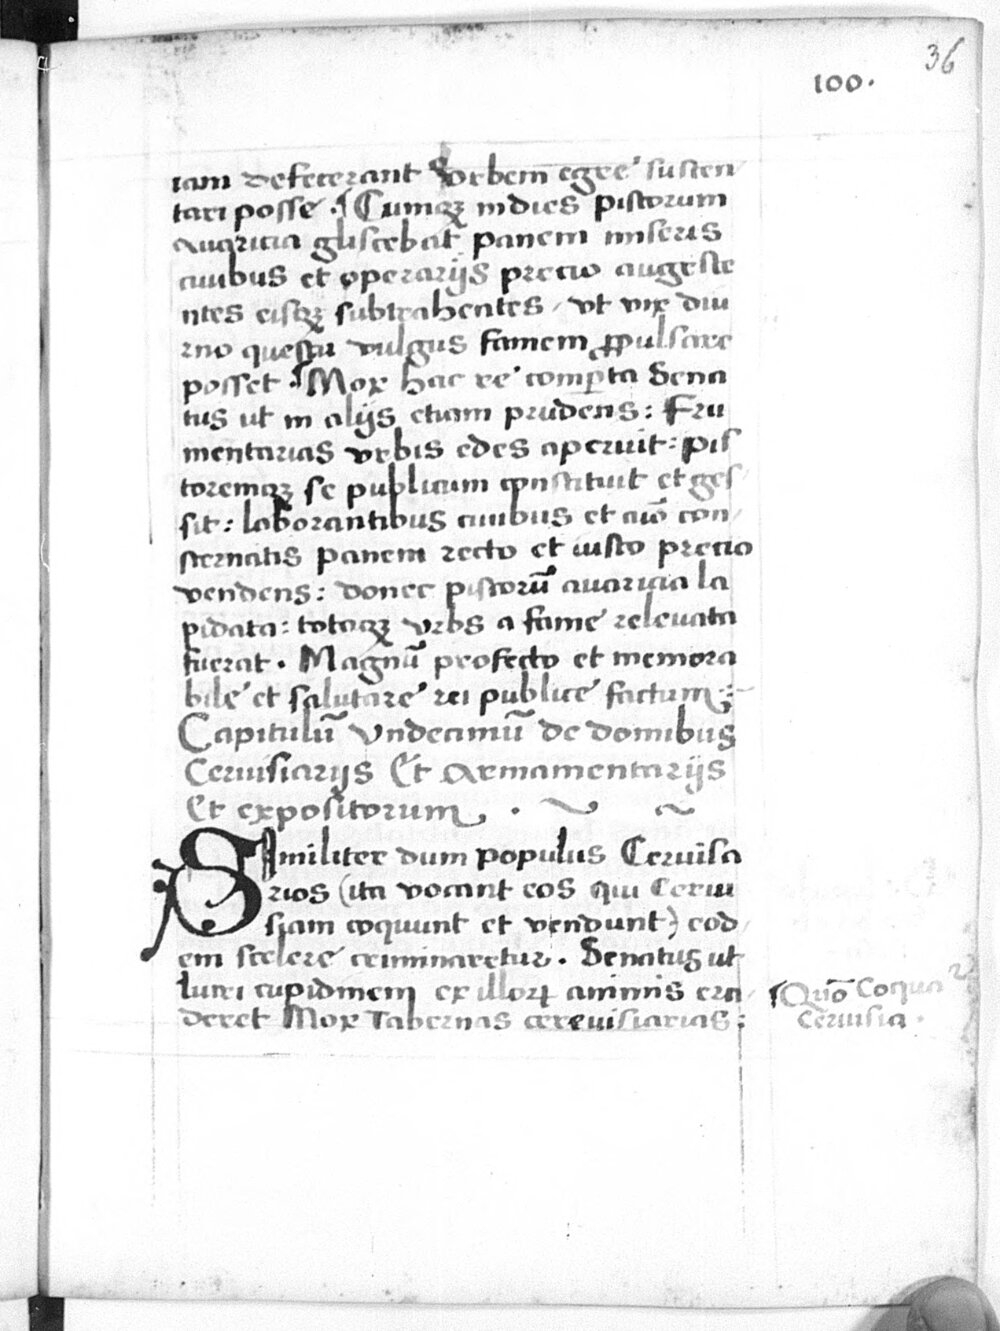 36
100.
iam defecerant Vrbem egre susten
tari posse. Cumqꝫ indies pistorum
auaricia gliscebat panem miseris
ciuibus et operarijs precio augeste
ntes eisqꝫ subtrahentes, vt vix diu
rno questu vulgus famem ꝓpulsare
posset. Mox hac re comperta Sena
tus ut in alijs etiam prudens: Fru
mentarias vrbis edes aperuit: pis
toremqꝫ se publicum constituit et ges
sit: laborantibus ciuibus et aīo con
sternatis panem recto et iusto precio
vendens: donec pistorū auaricia la
pidata: totaqꝫ vrbs a fame releuata
fuerat. Magnū profecto et memora
bile et salutare rei publice factum;
Capitulū Vndecimū de domibus
Ceruisiarijs Et Armamentarijs
Et expositorum.
Similiter dum populus Ceruisa
rios (ita vocant eos qui Cerui
siam coquunt et vendunt) eod
em scelere criminaretur. Senatus ut
lucri cupidinem ex illoꝝ animis era
deret Mox Tabernas cereuisiarias;
Quō Coqua
Ceruisia.